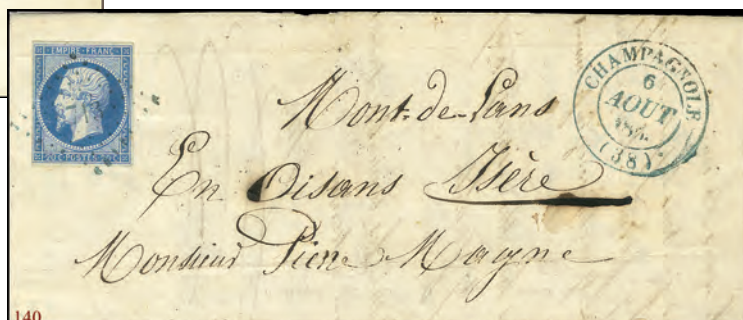 EMPIRE FRANC
20 C POSTES 20 C
CHAMPAGNOLE
6
AOUT
(38)
Mont-de-Lans
En Oisans Isère
Monsieur Pierre Magne
140